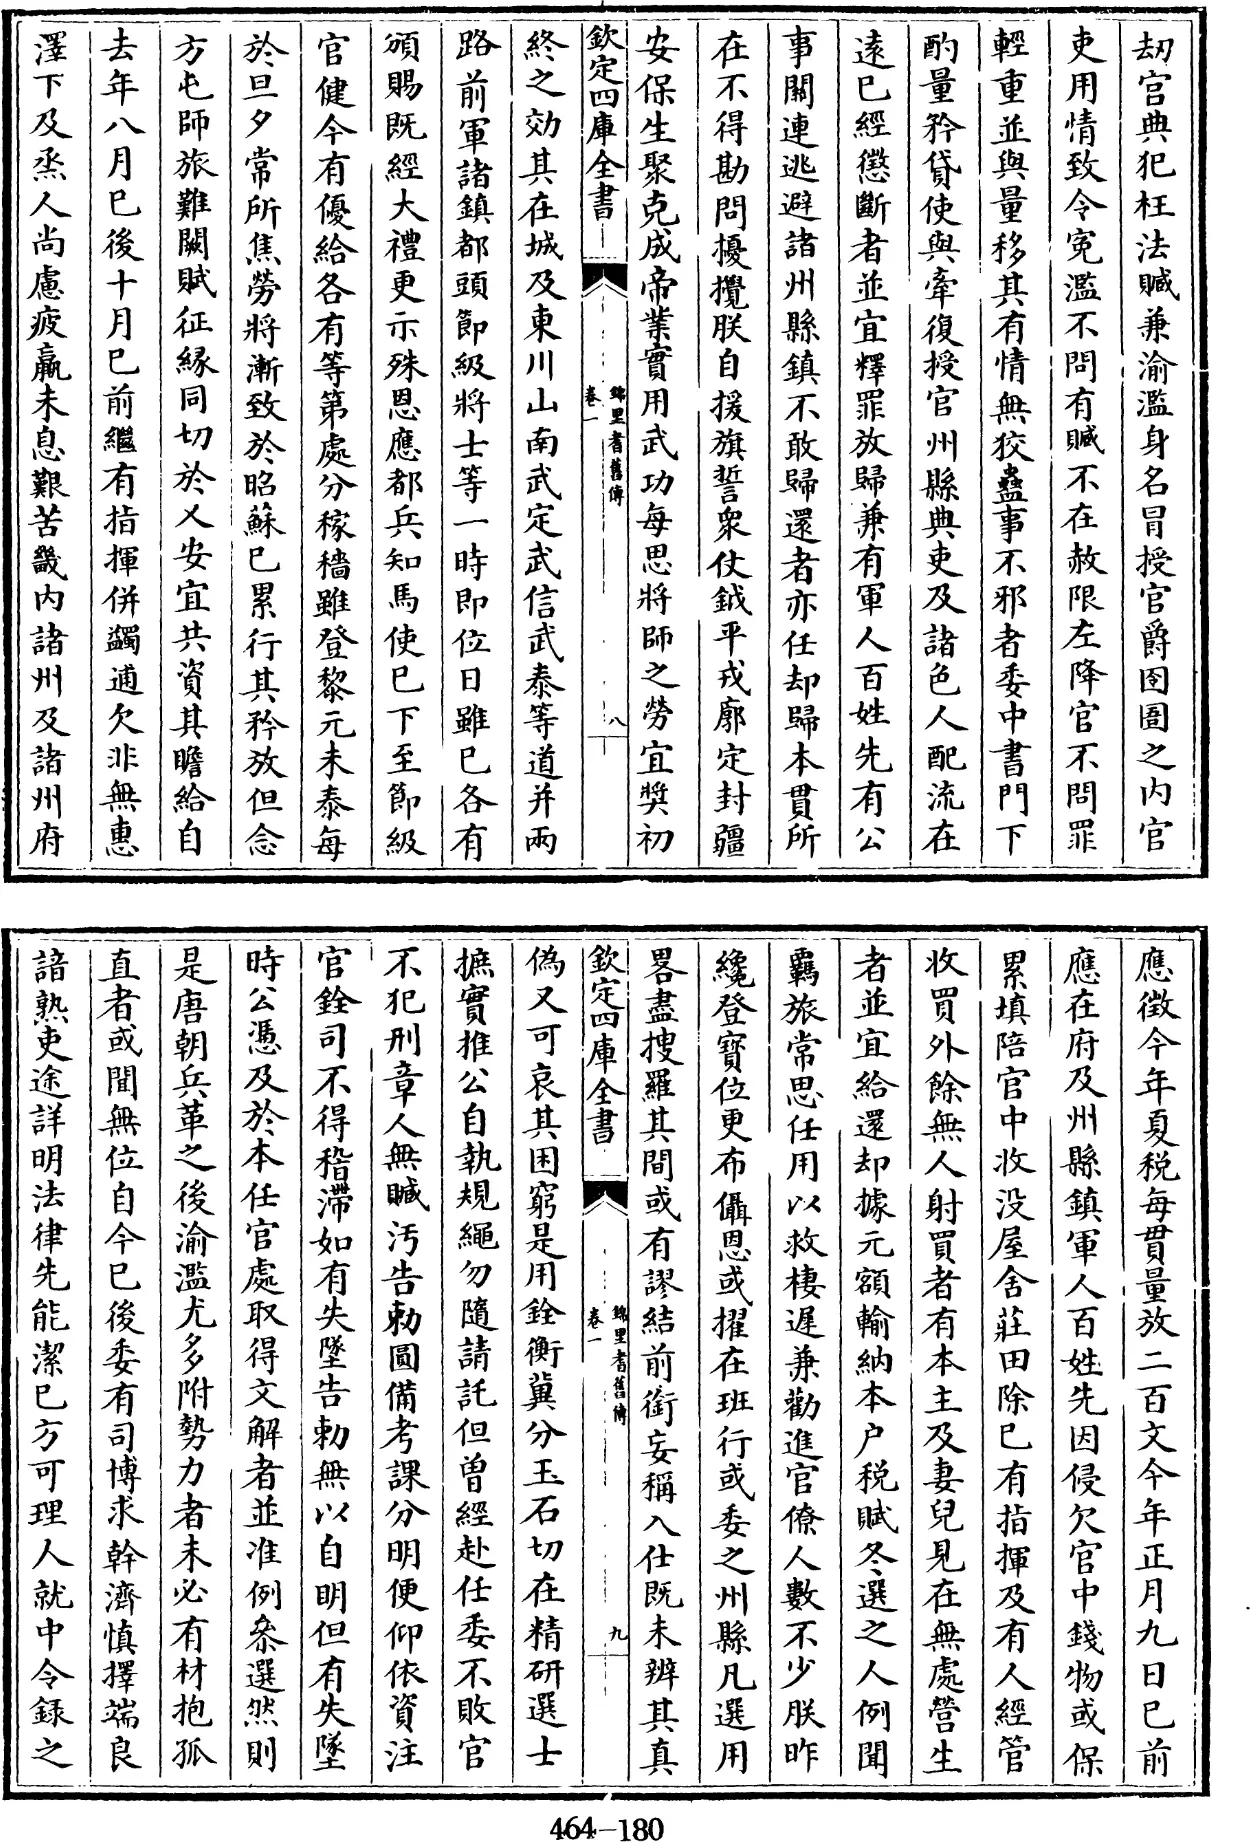 刼官典犯枉法贓兼渝濫身名冒授官爵囹圄之内官
吏用情致令寃濫不問有贓不在赦限左降官不問罪
輕重並與量移其有情無狡蠧事不邪者委中書門下
酌量矜貸使與牽復授官州縣典吏及諸色人配流在
逺已經懲斷者並宜釋罪放歸兼有軍人百姓先有公
事關連逃避諸州縣鎮不敢歸還者亦任却歸本貫所
在不得勘問擾攪朕自援旗誓衆仗鉞平戎廓定封疆
安保生聚克成帝業實用武功每思將師之勞宜奬初
欽定四庫全書
錦里耆舊傳
卷一
八
終之効其在城及東川山南武定武信武泰等道并兩
路前軍諸鎮都頭節級將士等一時即位日雖已各有
頒賜既經大禮更示殊恩應都兵知馬使已下至節級
官健今有優給各有等第處分稼穡雖登黎元未泰每
於旦夕常所焦勞將漸致於昭蘇已累行其矜放但念
方屯師旅難闕賦征縁同切於乂安宜共資其贍給自
去年八月已後十月已前繼有指揮併蠲逋欠非無惠
澤下及烝人尚慮疲羸未息艱苦畿内諸州及諸州府
應徵今年夏税每貫量放二百文今年正月九日已前
應在府及州縣鎮軍人百姓先因侵欠官中錢物或保
累填陪官中收没屋舍莊田除已有指揮及有人經管
收買外餘無人射買者有本主及妻兒見在無處營生
者並宜給還却據元額輸納本户税賦冬選之人例聞
羈旅常思任用以救棲遲兼勸進官僚人數不少朕昨
纔登寳位更布僃恩或擢在班行或委之州縣凡選用
畧盡搜羅其間或有謬結前銜妄稱入仕既未辨其真
欽定四庫全書
錦里耆舊傳
卷一
九
偽又可哀其困窮是用銓衡冀分玉石切在精研選士
摭實推公自執規繩勿隨請託但曽經赴任委不敗官
不犯刑章人無贓汚告勅圓備考課分明便仰依資注
官銓司不得稽滯如有失墜告勅無以自明但有失墜
時公憑及於本任官處取得文解者並准例叅選然則
是唐朝兵革之後渝濫尤多附勢力者未必有材抱孤
直者或聞無位自今已後委有司博求幹濟慎擇端良
諳熟吏途詳明法律先能潔已方可理人就中令録之
464-180